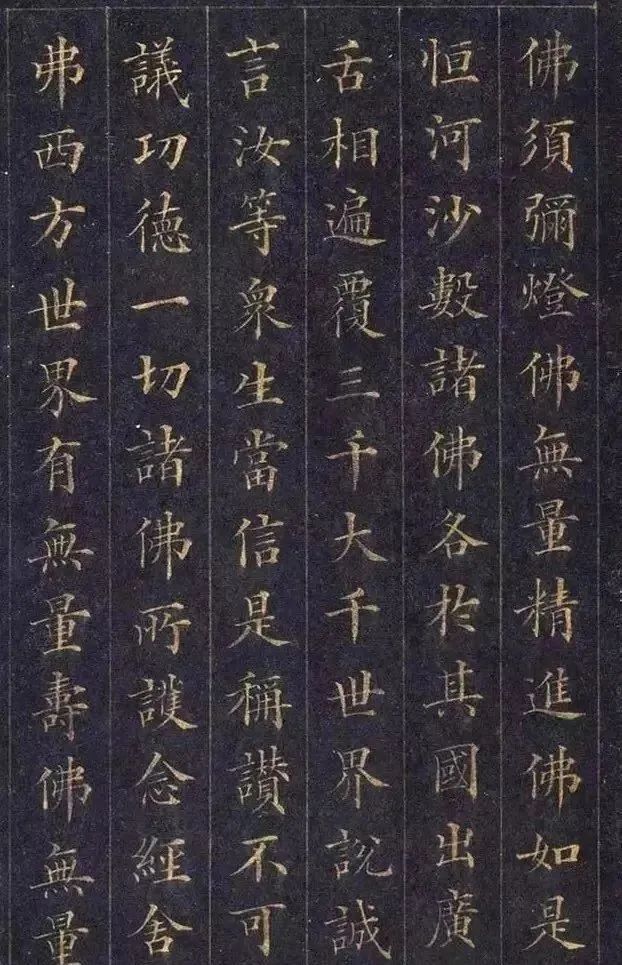 佛須彌燈佛無量精進佛如是
恒河沙數諸佛各於其國出廣
舌相遍覆三千大千世界說誠
言汝等衆生當信是稱讚不可
議功德一切諸佛所護念經舍
弗西方世界有無量壽佛無量